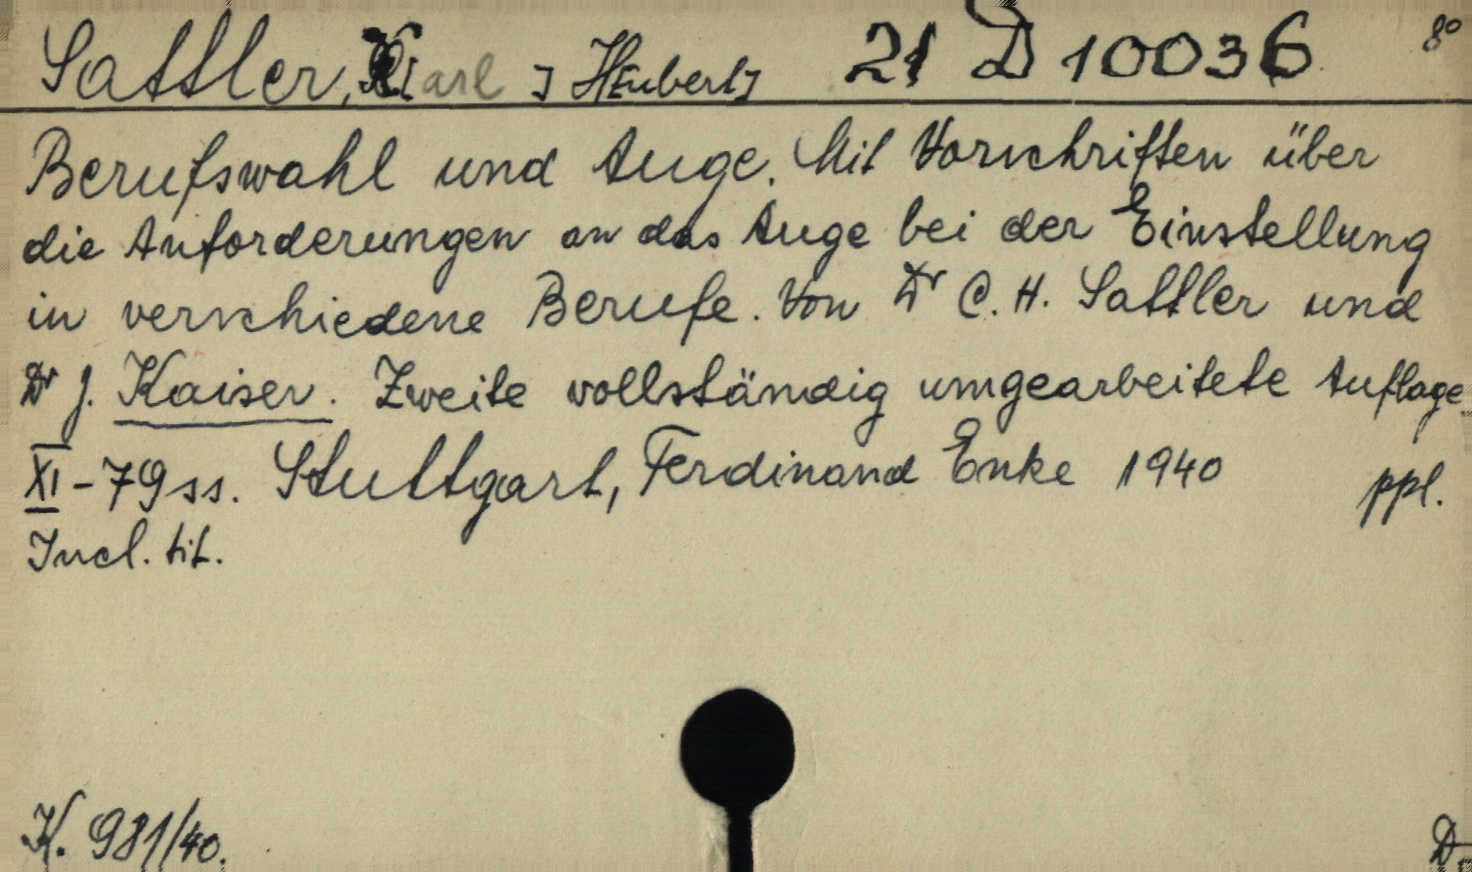 Sattler, Karl [Hubert] 21 D 10036 8°
Berufswahl und Auge. Mit Vorschriften über
die Anforderungen an das Auge bei der Einstellung
in verschiedene Berufe. Von Dr C. H. Sattler und
Dr J. Kaiser. Zweite vollständig umgearbeitete Auflage
XI-79 ss. Stuttgart, Ferdinand Enke 1940 ppl.
Incl. tit.
K. 981/40. D